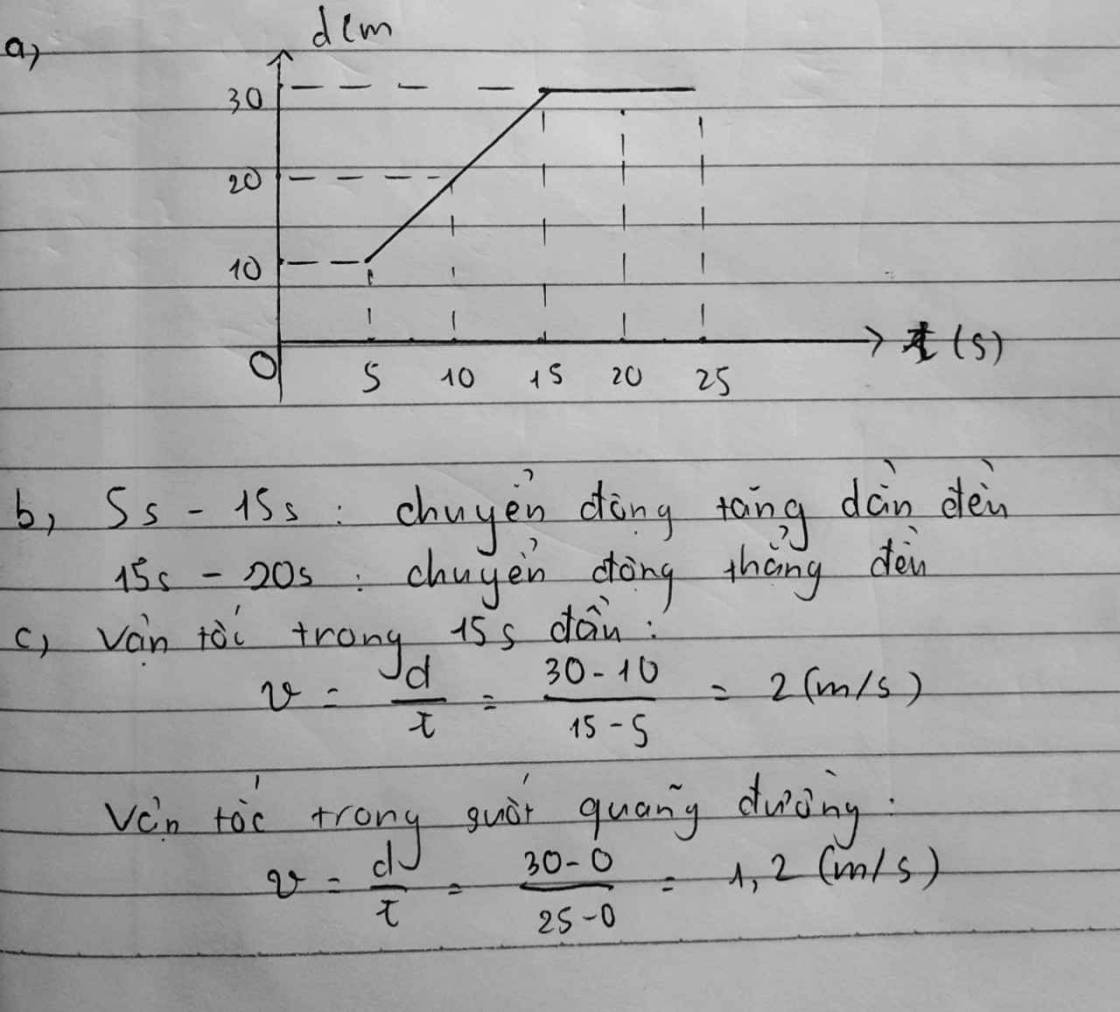 a,
d(m
30
20
10
O
5 10 15 20 25
t (s)
b, 5s - 15s : chuyển động tăng dần đều
15s - 20s : chuyển động thẳng đều
c, Vận tốc trong 15s đầu :
v = d/t = (30-10)/(15-5) = 2 (m/s)
Vận tốc trong suốt quãng đường :
v = d/t = (30-0)/(25-0) = 1,2 (m/s)